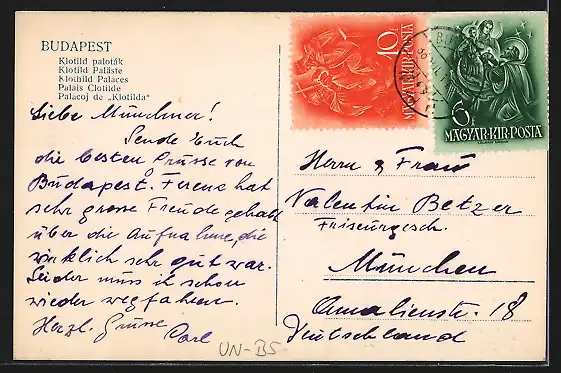 BUDAPEST
Klotild paloták
Klotild Paläste
Klothild Palaces
Palais Clotilde
Palacoj de „Klotilda"
Liebe Münchner!
Sende Euch
die besten Grüsse von
Budapest. Ferenz hat
sehr grosse Freude gehabt
über die Aufnahme, die
wirklich sehr gut war.
Leider muss ich schon
wieder wegfahren.
Herzl. Grüsse
Carl
UN-BS
10
MAGYAR·KIR·POSTA
6
MAGYAR·KIR·POSTA
Herrn & Frau
Valentin Betzer
Friseurgesch.
München
Annalienstr. 18
Deutschland